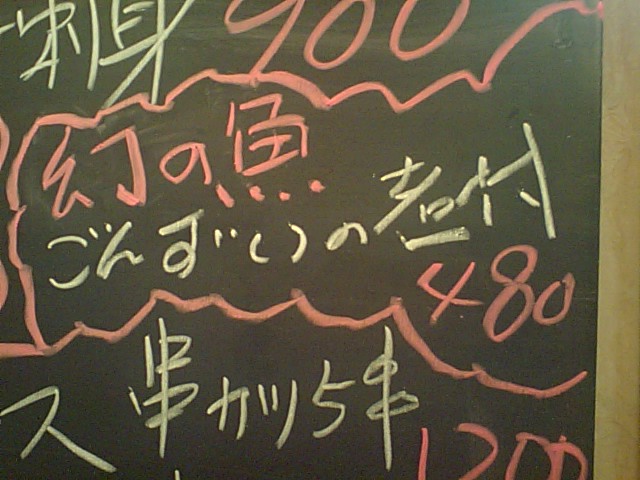 刺身 900
幻の魚
ごんずいの煮付
480
ス 串カツ5串
1200